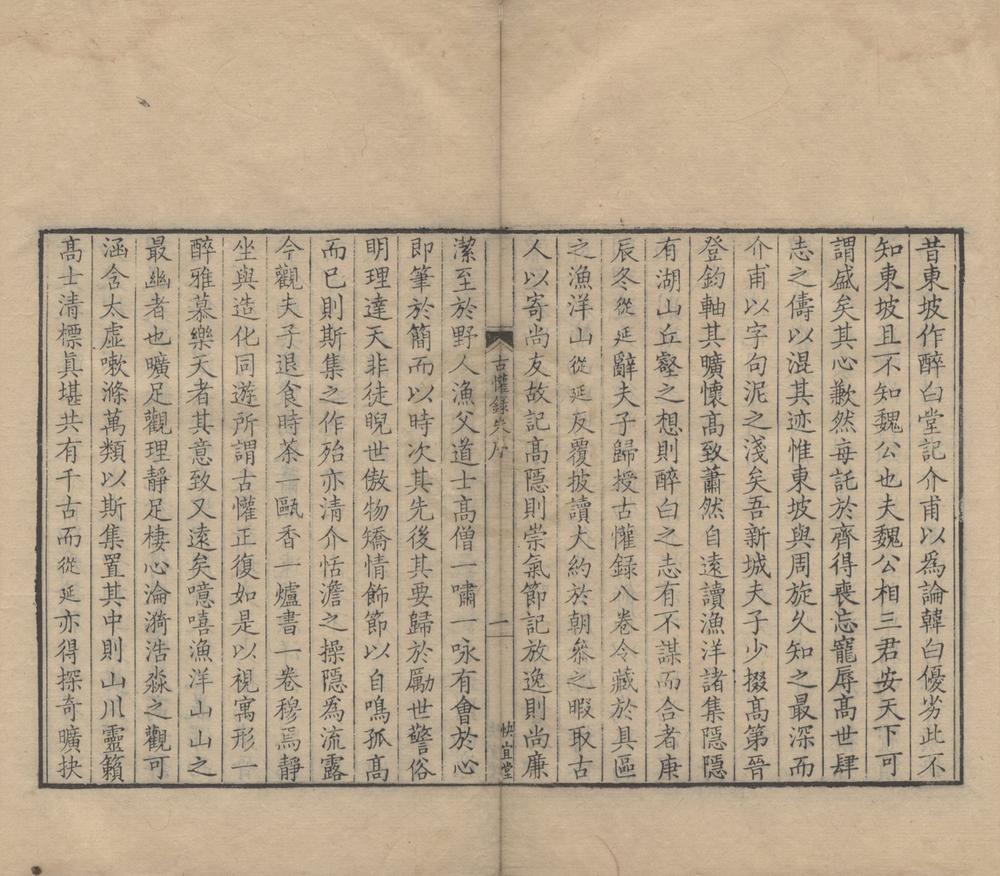 昔東坡作醉白堂記介甫以爲論韓白優劣此不
知東坡且不知魏公也夫魏公相三君安天下可
謂盛矣其心歉然每託於齊得喪忘寵辱高世肆
志之儔以混其迹惟東坡與周旋久知之最深而
介甫以字句泥之淺矣吾新城夫子少掇高第晉
登鈞軸其曠懷高致蕭然自遠讀漁洋諸集隱隱
有湖山丘壑之想則醉白之志有不謀而合者庚
辰冬從延辭夫子歸授古懽録八卷令藏於具區
之漁洋山從延反覆披讀大約於朝叅之暇取古
人以寄尚友故記高隱則崇氣節記放逸則尚廉
古懽録朱序 一 快宜堂
潔至於野人漁父道士高僧一嘯一咏有會於心
即筆於簡而以時次其先後其要歸於勵世警俗
明理達天非徒睨世傲物矯情飾節以自鳴孤高
而已則斯集之作殆亦清介恬澹之操隱為流露
今觀夫子退食時茶一甌香一爐書一卷穆焉靜
坐與造化同遊所謂古懽正復如是以視寓形一
醉雅慕樂天者其意致又遠矣噫嘻漁洋山山之
最幽者也曠足觀理靜足棲心淪漪浩淼之觀可
涵含太虛嗽滌萬類以斯集置其中則山川靈籟
高士清標眞堪共有千古而從延亦得探奇曠抉